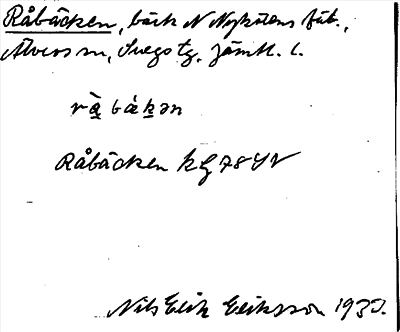 Råbäcken, bäck N Nykölens fäb.,
Älvros sn, Svegs tg, Jämtl. l.
rå̀ bä̀kən
Råbäcken kG 78 YV
Nils Erik Eriksson 193